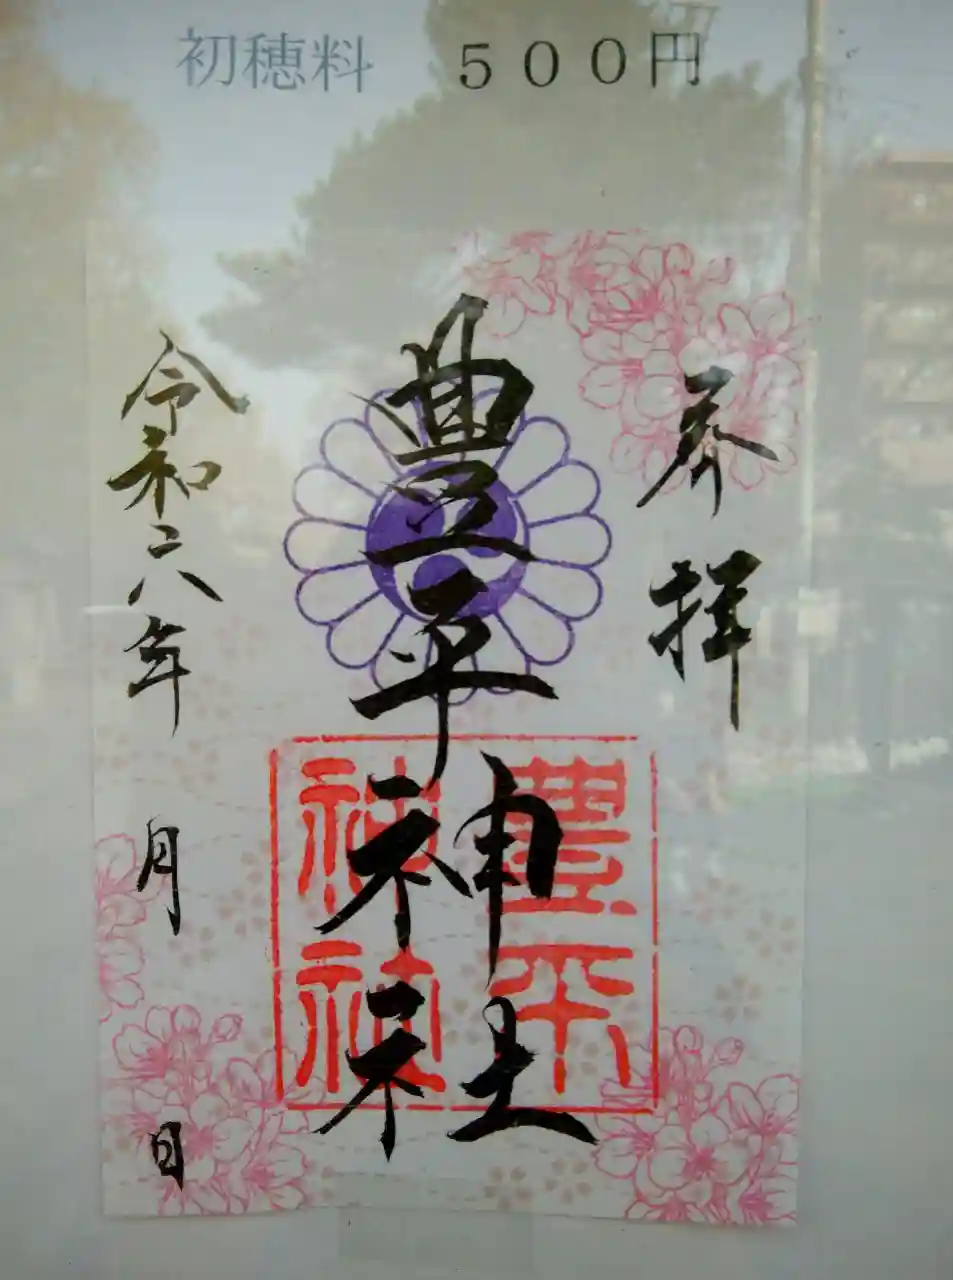 初穂料　５００円
奉拝
豊平神社
豊平
神社
令和六年　月　日